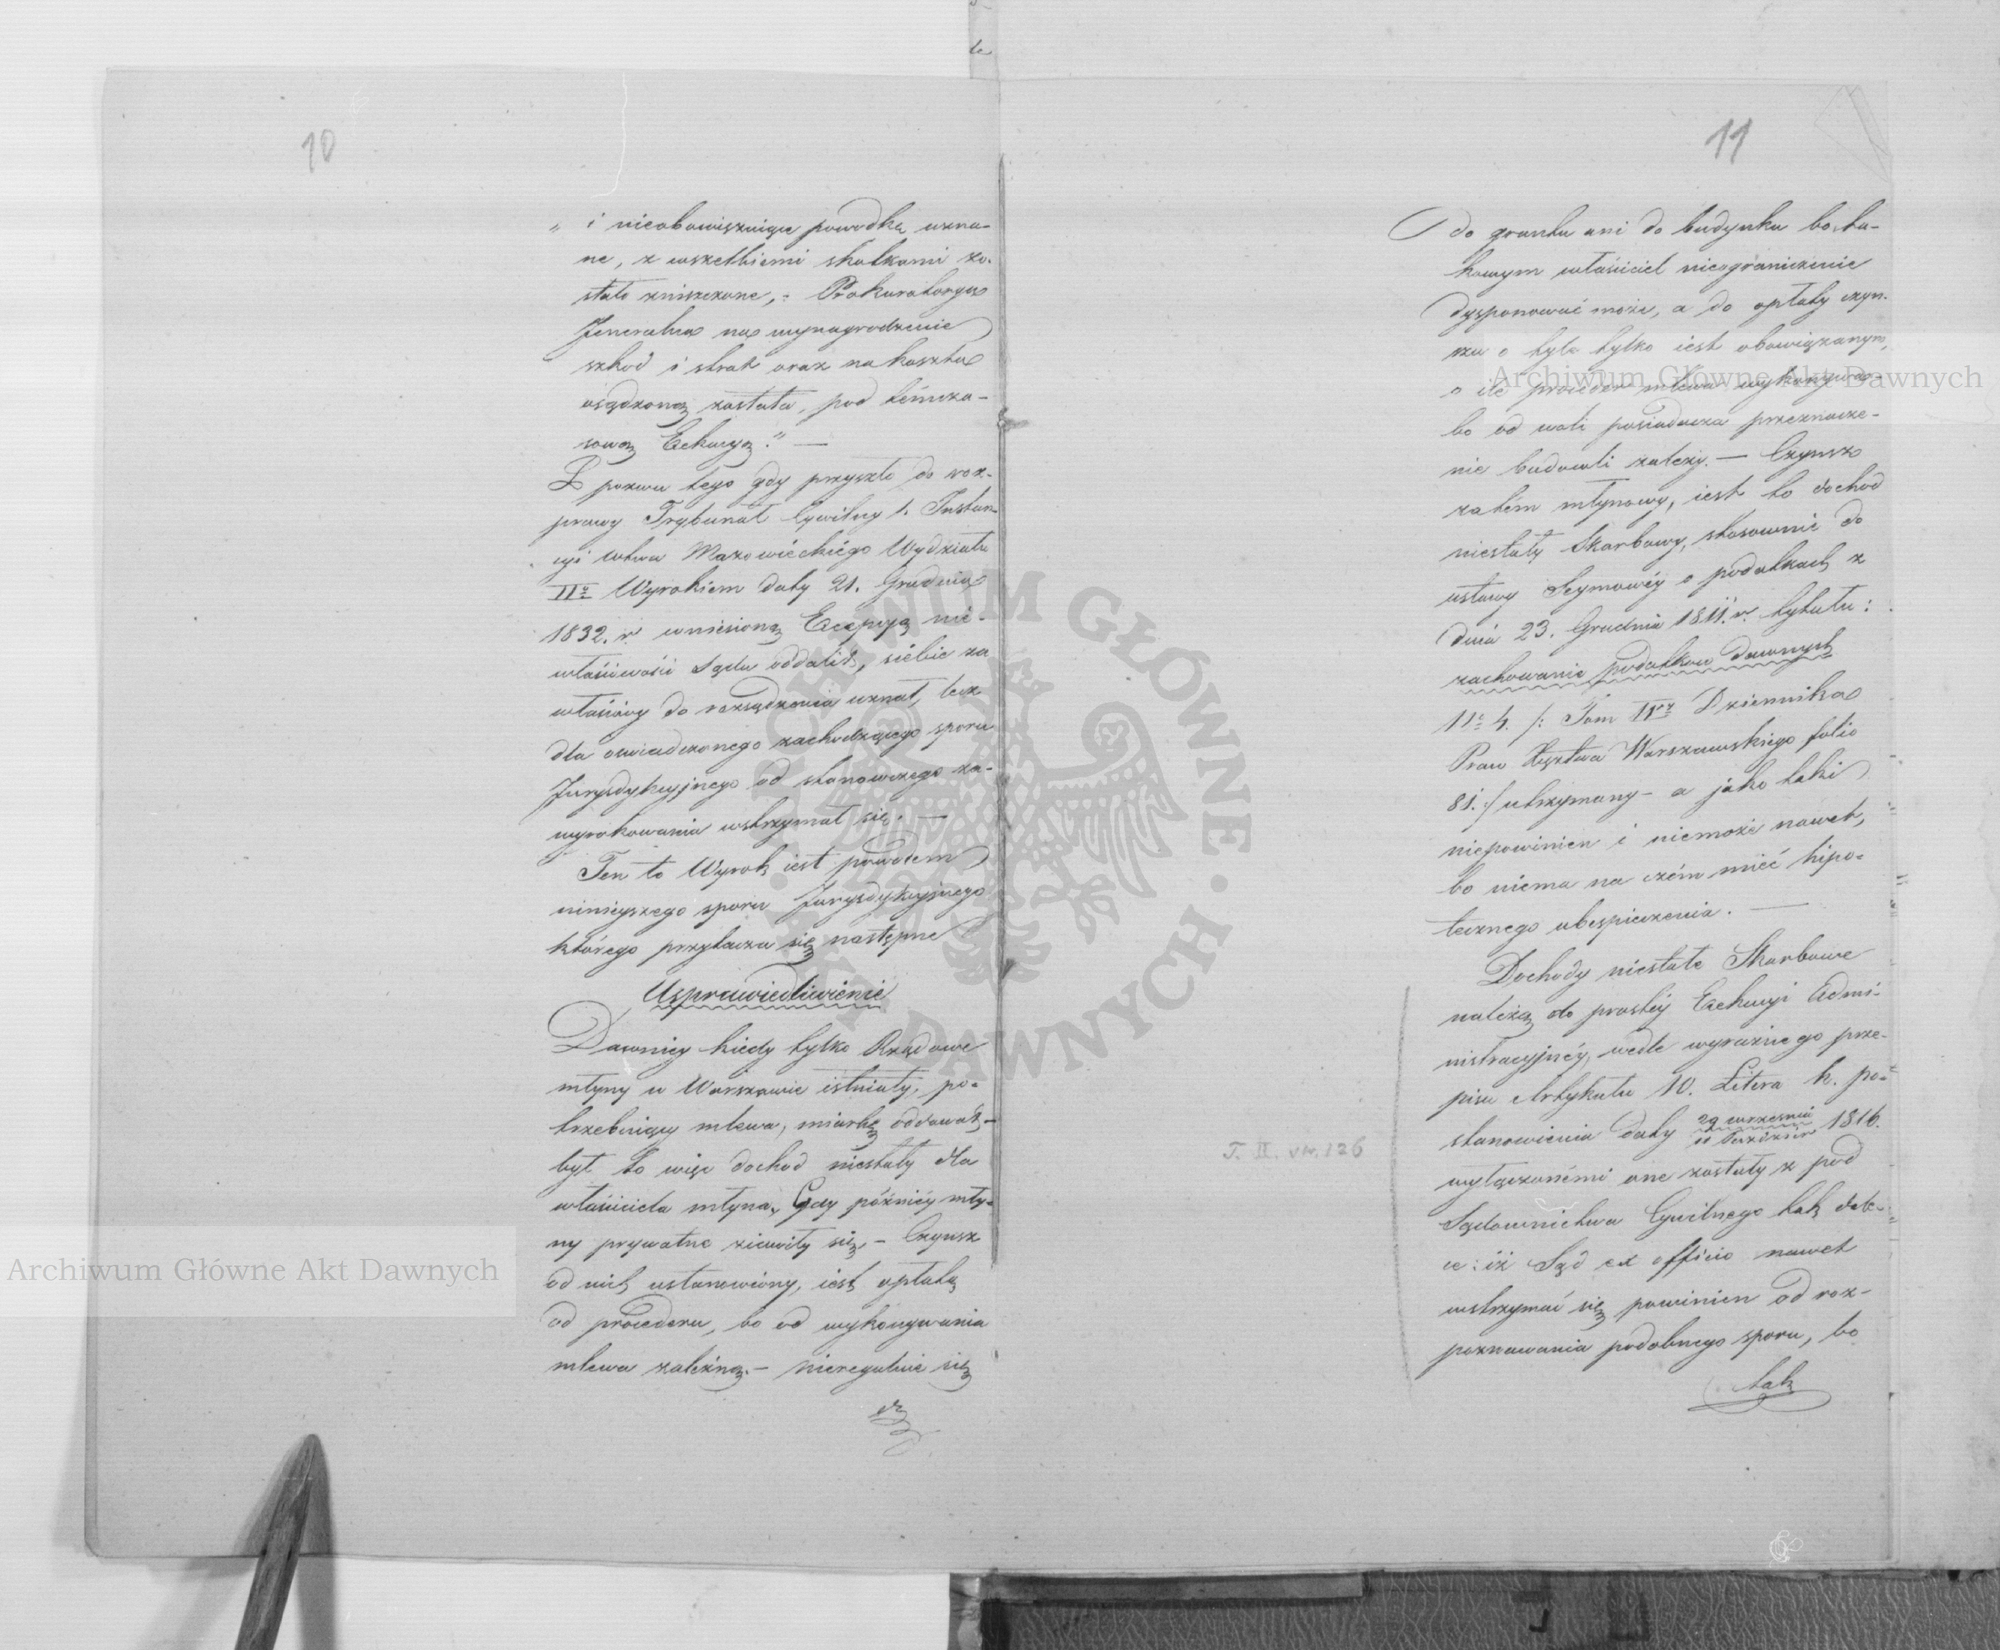 10
„ i nieobowiązuiące powodkę uzna-
ne, z wszelkiemi skutkami zo-
stało zniszczone, - Prokuratorya
Jeneralna na wynagrodzenie
szkód i strat oraz na koszta
osądzoną została, pod témcza-
sową Exekucyą." —
Z pozwu tego gdy przyszło do roz-
prawy Trybunał Cywilny 1. Instan-
cyi Wdztwa Mazowieckiégo Wydziału
II° Wyrokiem daty 21. Grudnia
1832. r. wniesioną Excepcyą nie-
właściwości Sądu oddalił, siebie za
właściwy do rozsądzenia uznał, lecz
dla oswiadczonego zachodzącego sporu
Jurysdykcyjnego od stanowczego za-
wyrokowania wstrzymał się. —
Ten to Wyrok iest powodem
ninieyszego sporu Jurysdykcyjnego
którego przytacza się następne
Usprawiedliwienie
Dawniey kiedy tylko Rządowe
młyny w Warszawie istniały, po-
trzebuiący mlewa, miarkę oddawał -
był to więc dochod niestały dla
właściciela młyna, Gdy późniéy mły-
ny prywatne ziawiły się - Czynsz
od nich ustanowiony, iest opłatą
od procederu, bo od wykonywania
mlewa zależną. - nieregulnie się
11
do gruntu ani do budynku bo ta-
kowym właściciel nieograniczenie
dysponować może, a do opłaty czyn-
szu o tyle tylko iest obowiązanym,
o ile proceder mlewa wykonywa -
bo od woli posiadacza przeznacze-
nie budowli zależy. — Czynsz
zatém młynowy, iest to dochod
niestały Skarbowy, stosownie do
ustawy Seymowéy o podatkach z
dnia 23. Grudnia 1811. r. tytułu:
zachowanie podatkow dawnych
N° 4. /: Tom IV Dziennika
Praw Xięstwa Warszawskiego folio
81. :/ utrzymany - a jako taki
niepowinien i niemoże nawet,
bo niema na czém mieć hipo-
tecznego ubespieczenia. —
Dochody niestałe Skarbowe
należą do prostéy Exekucyi Admi-
nistracyjnéy, wedle wyraźnego prze-
pisu Artykułu 10. Litera k. po-
stanowienia daty 29 września 1816.
wyłączonémi one zostały z pod
Sądownictwa Cywilnego tak dale-
ce: iż Sąd ex officio nawet
wstrzymać się powinien od roz-
poznawania podobnego sporu, bo
tak
T. II. str. 126
Archiwum Główne Akt Dawnych
Archiwum Główne Akt Dawnych
ARCHIWUM GŁÓWNE · AKT DAWNYCH ·